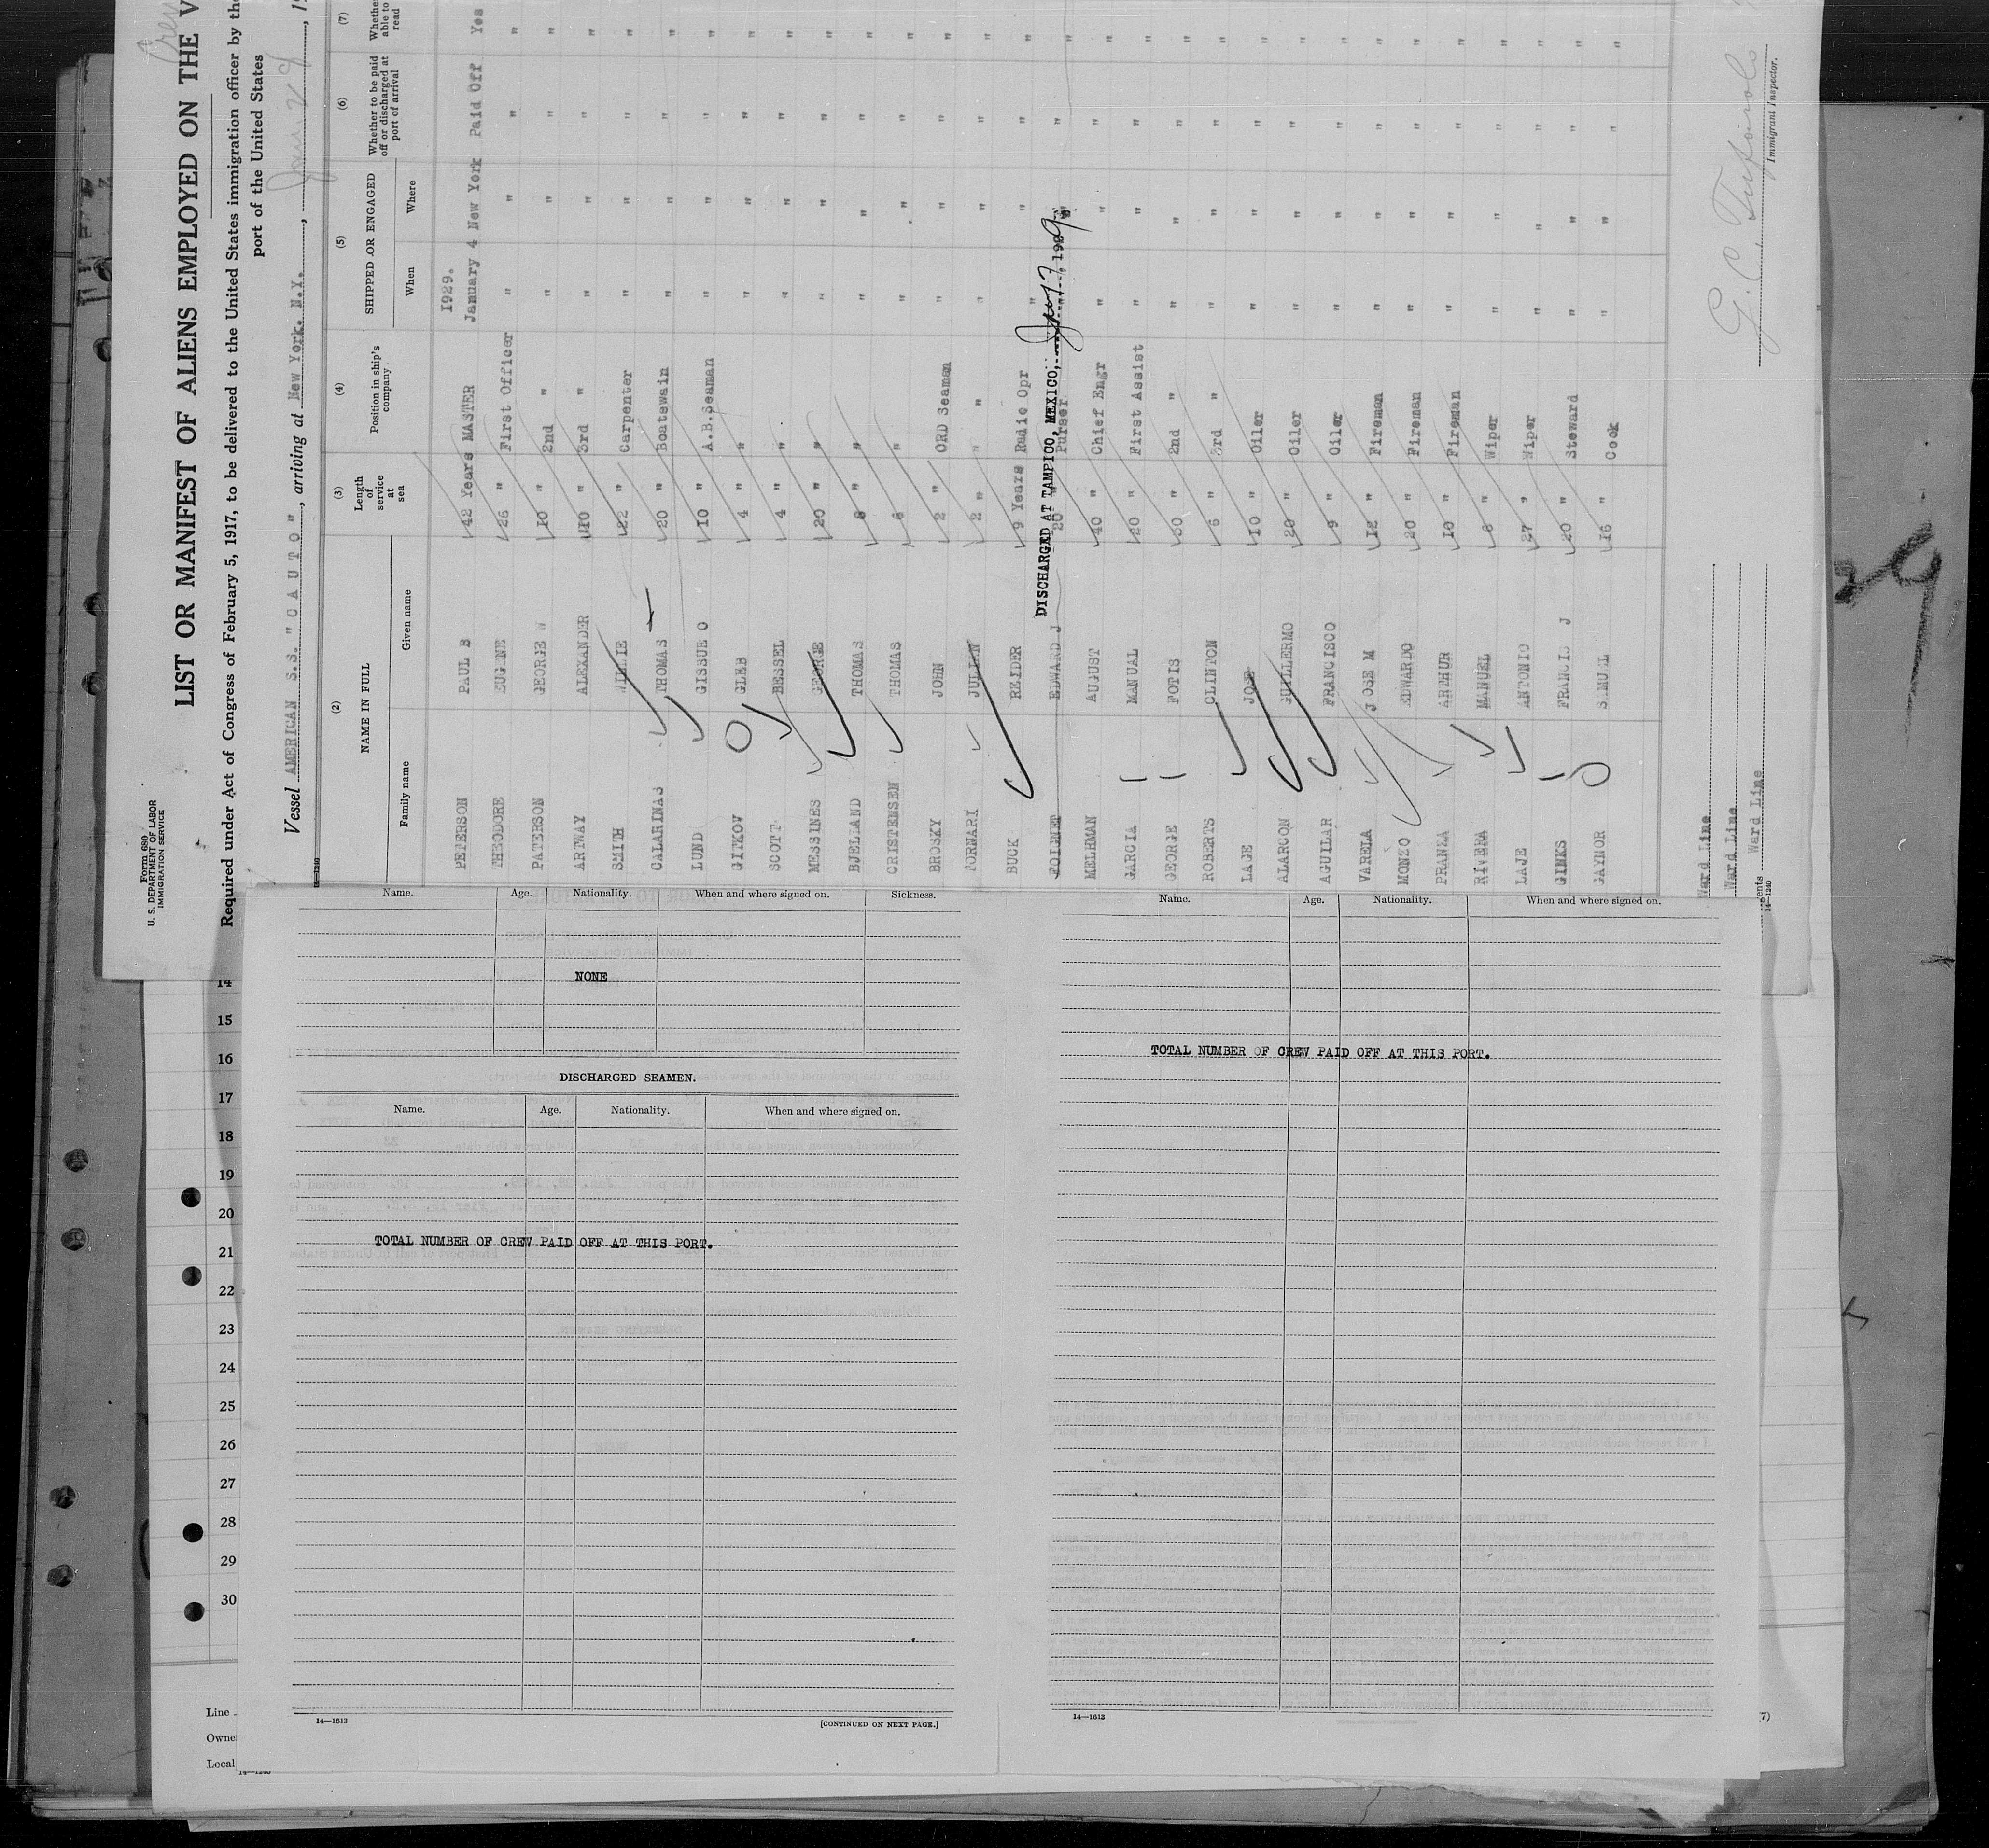 Form 680
U. S. DEPARTMENT OF LABOR
IMMIGRATION SERVICE
LIST OR MANIFEST OF ALIENS EMPLOYED ON THE V
Required under Act of Congress of February 5, 1917, to be delivered to the United States immigration officer by the
port of the United States
Vessel AMERICAN S.S. "C A U T O", arriving at New York. N.Y., Jan 29, 19
(2) (3) (4) (5) (6) (7)
NAME IN FULL
Family name Given name
Length of service at sea
Position in ship's company
SHIPPED OR ENGAGED
When Where
Whether to be paid off or discharged at port of arrival
Whether able to read
1929.
PETERSON PAUL B 42 Years MASTER January 4 New York Paid Off Yes
THEODORE EUGENE 26 " First Officer " " " "
PATERSON GEORGE W 10 " 2nd " " " " "
ARTWAY ALEXANDER 10 " 3rd " " " " "
SMITH WILLIE 22 " Carpenter " " " "
CALARINAS THOMAS 20 " Boatswain " " " "
LUND GISSUE O 10 " A.B.Seaman " " " "
GITKOV GLEB 4 " " " " " "
SCOTT BESSEL 4 " " " " " "
MESSINES GEORGE 20 " " " " " "
BJELLAND THOMAS 8 " " " " " "
CRISTENSEN THOMAS 6 " " " " " "
BROSKY JOHN 2 " ORD Seaman " " " "
FORNARI JULIEN 2 " " " " " "
BUCK REIDER 9 Years Radio Opr " " " "
POIGNET EDWARD J 20 " Purser " " "
DISCHARGED AT TAMPICO, MEXICO, Jan 17, 1929
MELHMAN AUGUST 40 " Chief Engr " " " "
GARCIA MANUAL 20 " First Assist " " " "
GEORGE FOTIS 30 " 2nd " " " " "
ROBERTS CLINTON 6 " 3rd " " " " "
LAGE JOSE 10 " Oiler " " " "
ALARCON GUILLERMO 20 " Oiler " " " "
AGUILAR FRANCISCO 9 " Oiler " " " "
VARELA JOSE M 12 " Fireman " " " "
MONZO EDWARDO 20 " Fireman " " " "
PRANKA ARTHUR 10 " Fireman " " " "
RIVERA MANUEL 8 " Wiper " " " "
LAJE ANTONIO 27 " Wiper " " " "
GINKS FRANCIS J 20 " Steward " " " "
GAYNOR SAMUEL 16 " Cook " " " "
Ward Line
Ward Line
Ward Line
ents
14—1240
Immigrant Inspector.
Name. Age. Nationality. When and where signed on. Sickness.
NONE
DISCHARGED SEAMEN.
Name. Age. Nationality. When and where signed on.
TOTAL NUMBER OF CREW PAID OFF AT THIS PORT.
14—1613
[CONTINUED ON NEXT PAGE.]
Name. Age. Nationality. When and where signed on.
TOTAL NUMBER OF CREW PAID OFF AT THIS PORT.
14—1613
14
15
16
17
18
19
20
21
22
23
24
25
26
27
28
29
30
Line
Owner
Local
7)